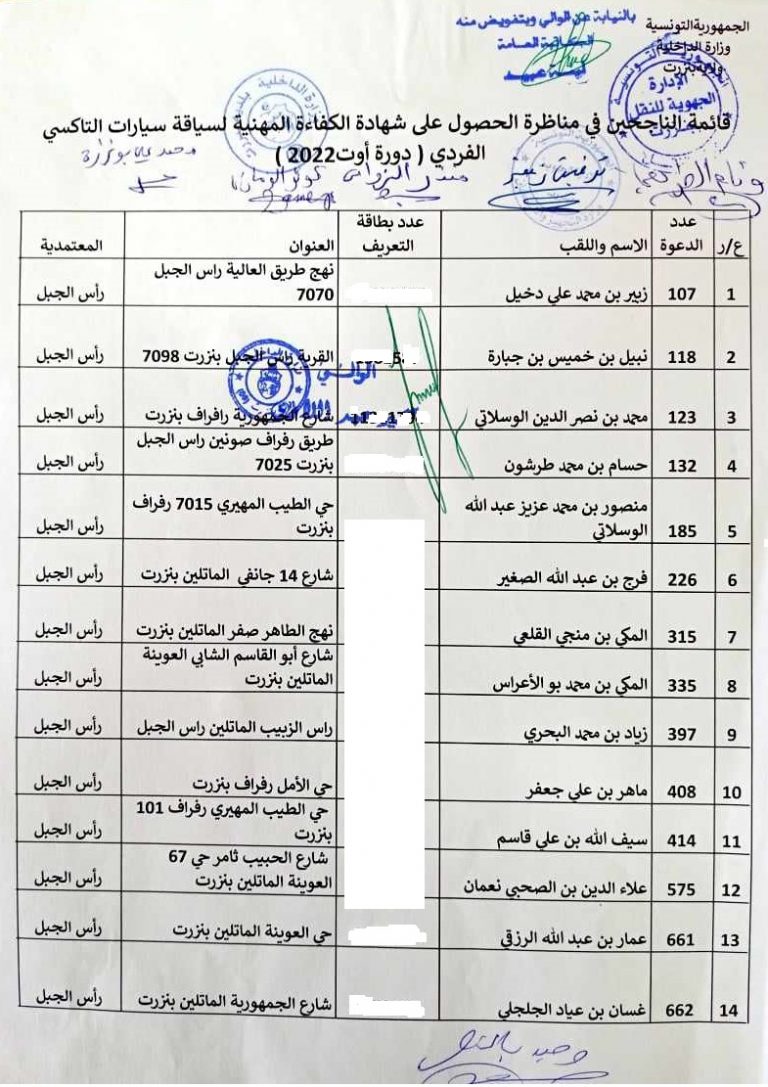 الجمهورية التونسية
وزارة الداخلية
ولاية بنزرت
بالنيابة عن الوالي وبتفويض منه
الكاتبة العامة
الإدارة
الجهوية للنقل
قائمة الناجحين في مناظرة الحصول على شهادة الكفاءة المهنية لسياقة سيارات التاكسي
الفردي ( دورة أوت2022 )
ع/ر عدد الدعوة الاسم واللقب عدد بطاقة التعريف العنوان المعتمدية
1 107 زبير بن محمد علي دخيل نهج طريق العالية راس الجبل 7070 رأس الجبل
2 118 نبيل بن خميس بن جبارة القرية راس الجبل بنزرت 7098 رأس الجبل
الوالي
3 123 محمد بن نصر الدين الوسلاتي شارع الجمهورية رافراف بنزرت رأس الجبل
4 132 حسام بن محمد طرشون طريق رفراف صونين راس الجبل بنزرت 7025 رأس الجبل
5 185 منصور بن محمد عزيز عبد الله الوسلاتي حي الطيب المهيري 7015 رفراف بنزرت رأس الجبل
6 226 فرج بن عبد الله الصغير شارع 14 جانفي الماتلين بنزرت رأس الجبل
7 315 المكي بن منجي القلعي نهج الطاهر صفر الماتلين بنزرت رأس الجبل
8 335 المكي بن محمد بو الأعراس شارع أبو القاسم الشابي العوينة الماتلين بنزرت رأس الجبل
9 397 زياد بن محمد البحري راس الزبيب الماتلين راس الجبل رأس الجبل
10 408 ماهر بن علي جعفر حي الأمل رفراف بنزرت رأس الجبل
11 414 سيف الله بن علي قاسم حي الطيب المهيري رفراف 101 بنزرت رأس الجبل
12 575 علاء الدين بن الصحبي نعمان شارع الحبيب ثامر حي 67 العوينة الماتلين بنزرت رأس الجبل
13 661 عمار بن عبد الله الرزقي حي العوينة الماتلين بنزرت رأس الجبل
14 662 غسان بن عياد الجلجلي شارع الجمهورية الماتلين بنزرت رأس الجبل